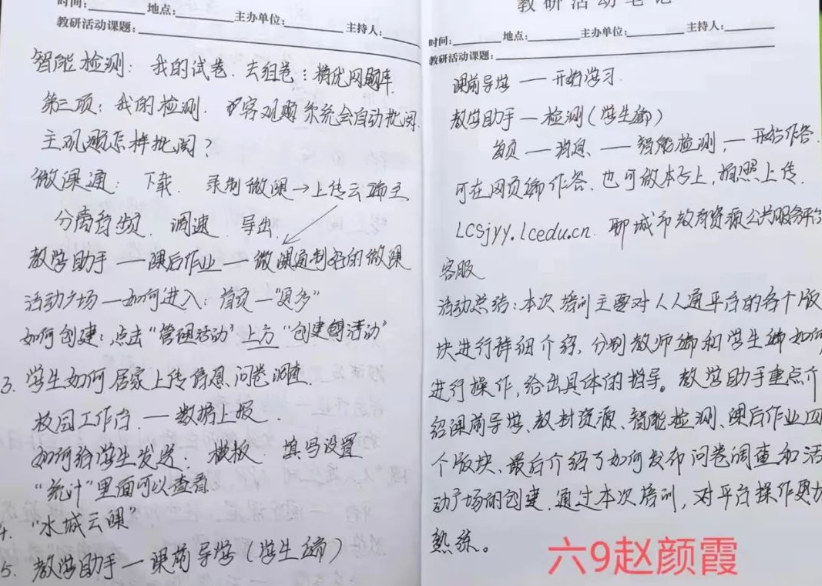 时间：　地点：　主办单位：　主持人：
教研活动课题：
智能检测：我的试卷、去组卷：精优网题库
第三项：我的检测、客观题系统会自动批阅
主观题怎样批阅？
微课通：下载、录制微课→上传云端王
分离音频、调速、导出
教学助手——课后作业——微课通制好的微课
活动广场——如何进入：首页—“更多”
如何创建：点击“管理活动”上方“创建新活动”
3. 学生如何居家上传信息、问卷调查
校园工作台——数据上报
如何给学生发送：模板、填写设置
“统计”里面可以查看
4. “水城云课”
5. 教学助手——课前导学（学生端）
教研活动笔记
时间：　地点：　主办单位：　主持人：
教研活动课题：
课前导学——开始学习
教学助手——检测（学生端）
首页——消息——智能检测——开始作答
可在网页端作答、也可做本子上，拍照上传
lcsjyy.lcedu.cn 聊城市教育资源公共服务平台
客服
活动总结：本次培训主要对人人通平台的各个版
块进行详细介绍，分别教师端和学生端如何
进行操作，给出具体的指导。教学助手重点介
绍课前导学、教材资源、智能检测、课后作业四
个版块、最后介绍了如何发布问卷调查和活
动广场的创建，通过本次培训，对平台操作更加
熟练。
六9赵颜霞